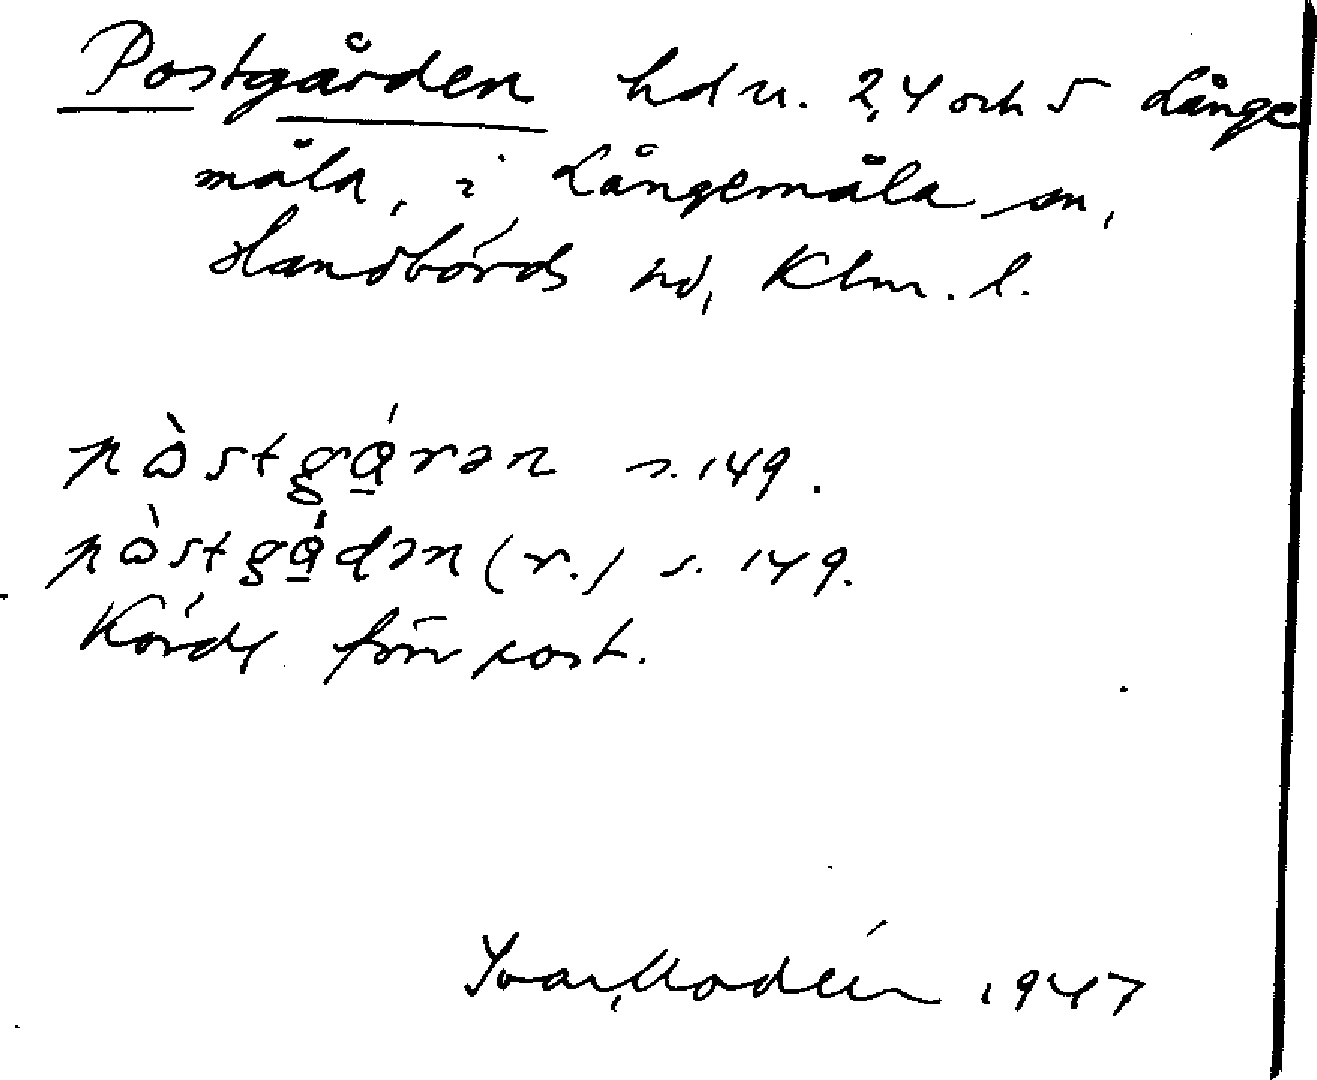 Postgården hdn. 2,4 och 5 Långe
måla, i Långemåla sn,
Handbörds hd, Klm. l.
pòstgá̱rən s. 149.
pòstgá̱dən (r.) s. 149.
Körde förr post.
Ivar Modéer 1947